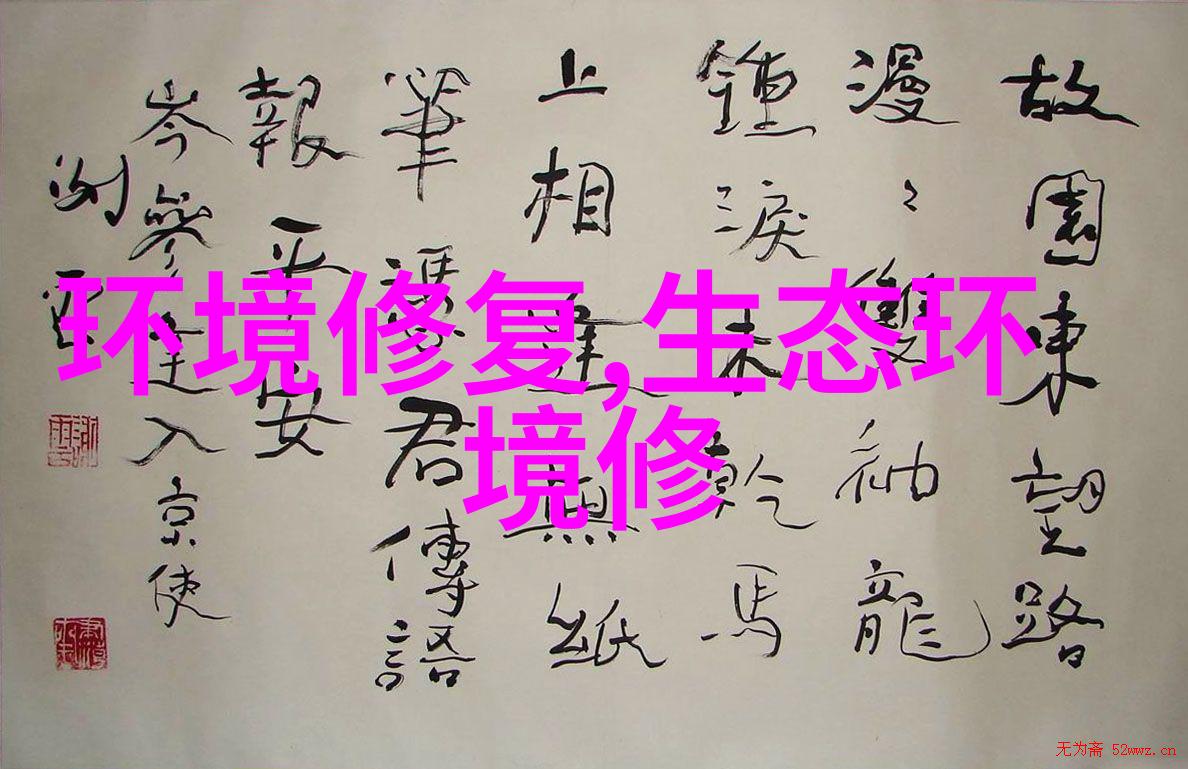 故園東望路
漫々雙袖龍
鍾淚未乾馬
上相逢無紙
筆憑君傳語
報平安
岑參逢入京使
环境修复,生态环
境修
无为斋 52wwz.cn